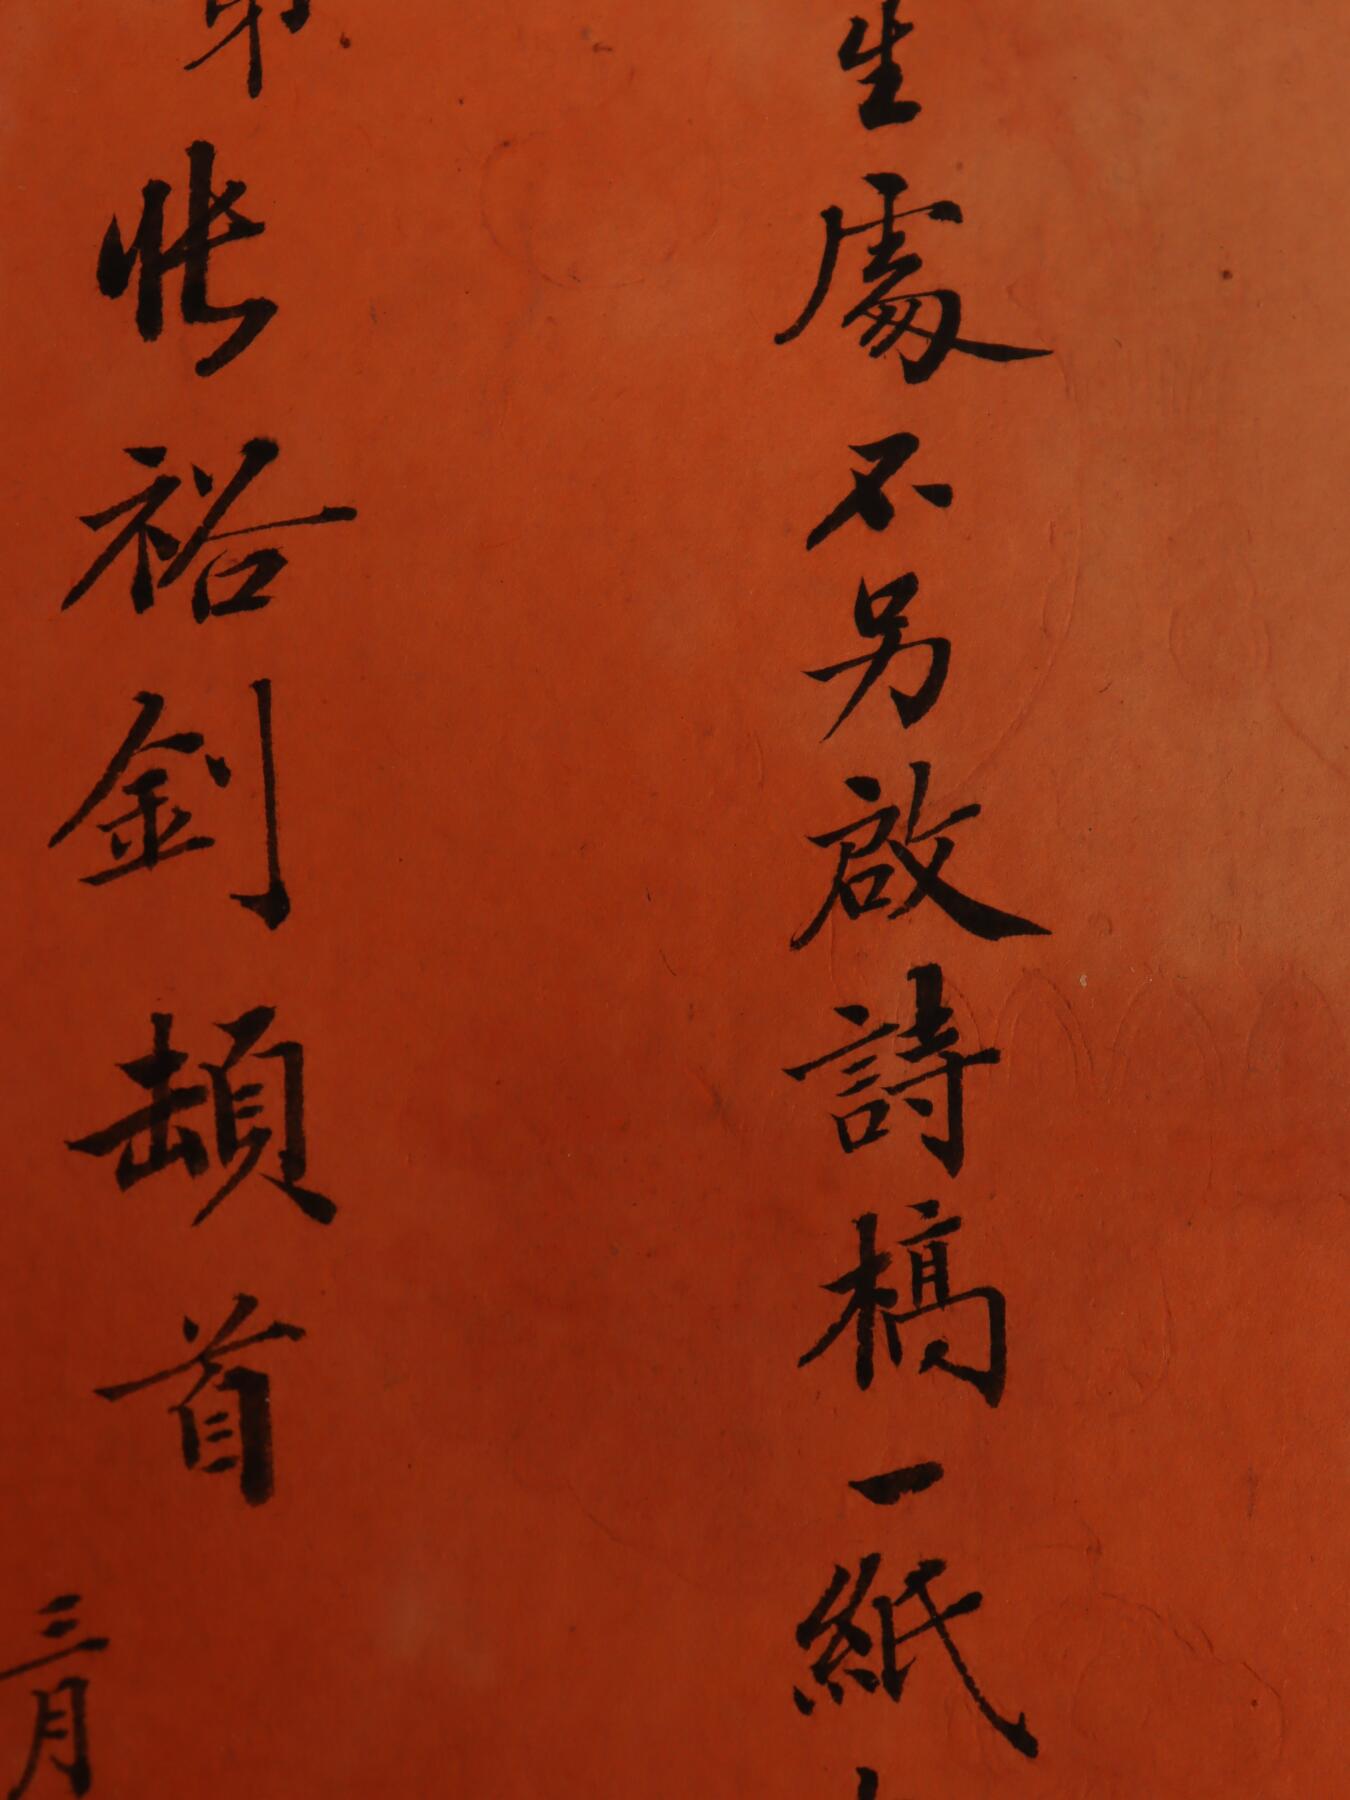 生處不另啟詩槁一紙
弟張裕釗頓首
三月